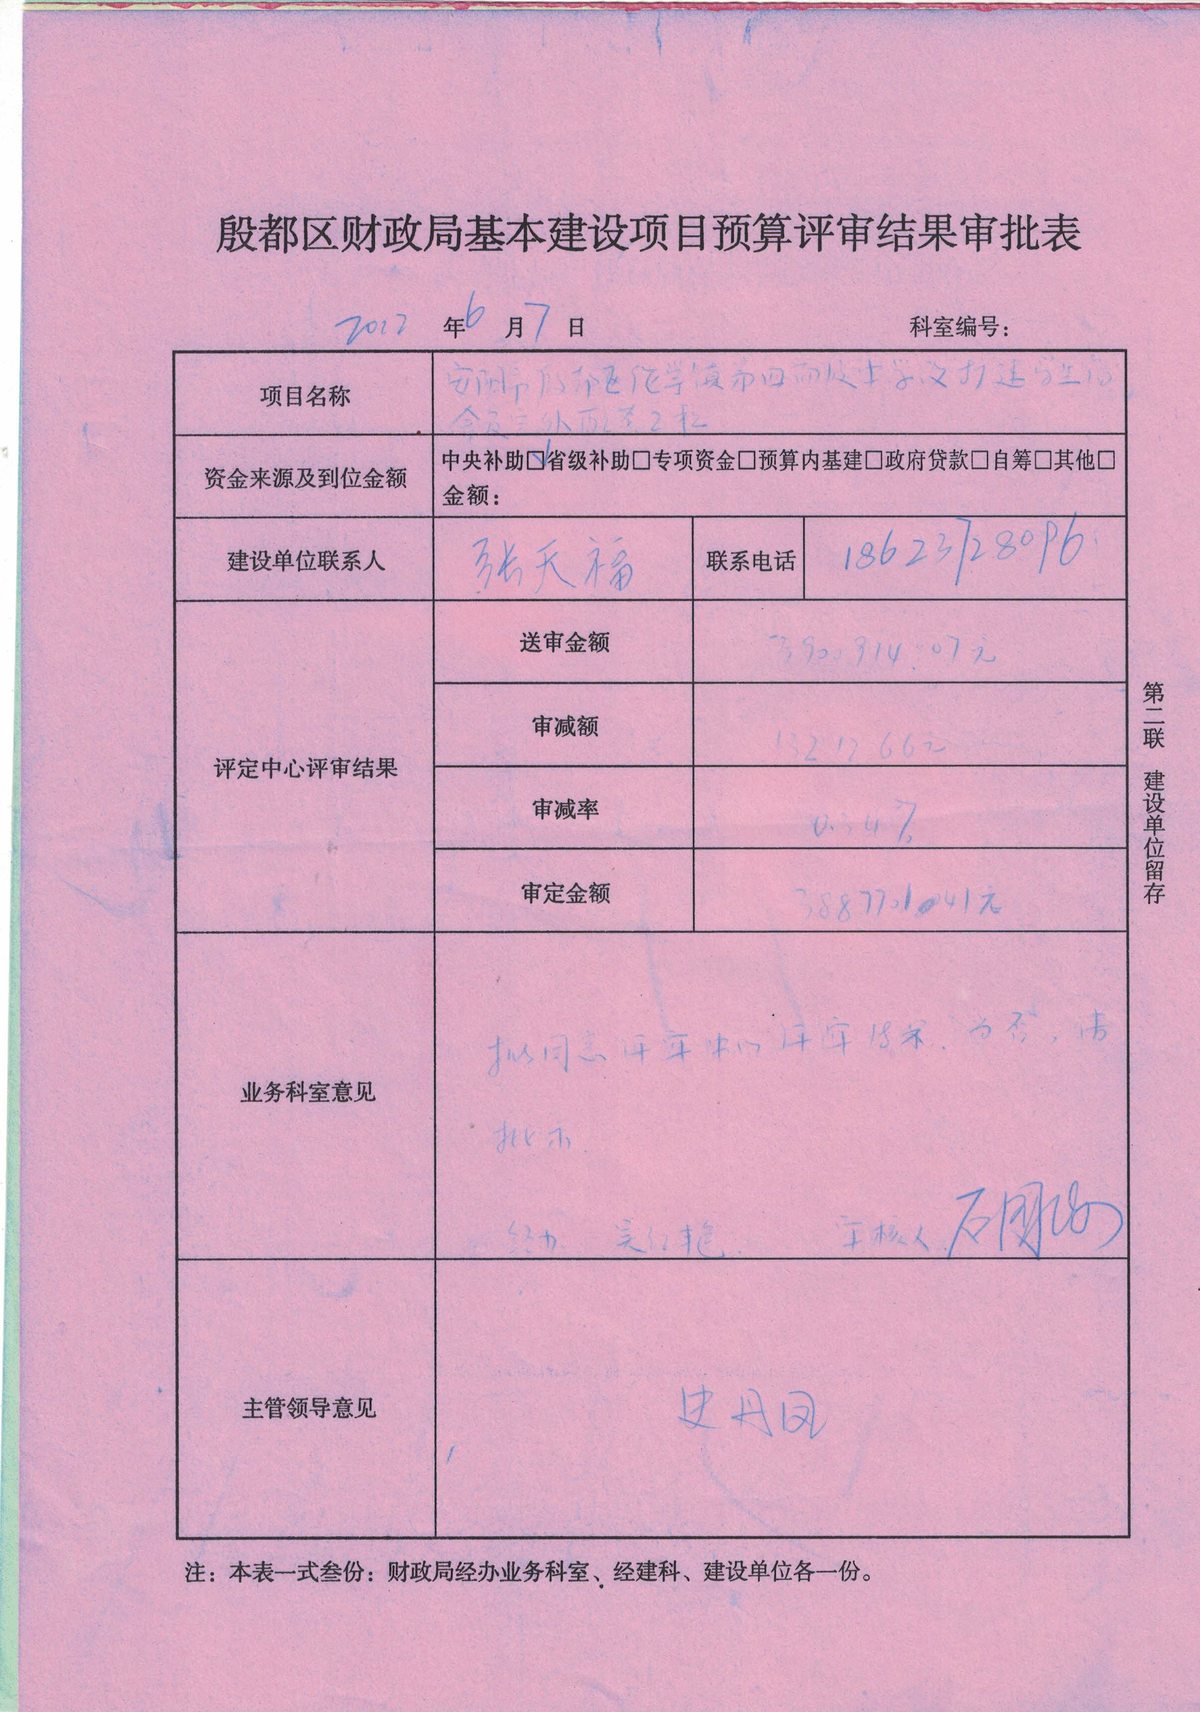 殷都区财政局基本建设项目预算评审结果审批表
2022 年 6 月 7 日 科室编号：
项目名称 安阳市殷都区伦掌镇
资金来源及到位金额 中央补助□省级补助□专项资金□预算内基建□政府贷款□自筹□其他□
金额：
建设单位联系人 张天福 联系电话 18623728096
评定中心评审结果
送审金额 3900914.07元
审减额 13212.66元
审减率 0.34%
审定金额 3887701.41元
业务科室意见
拟同意评审中心评审结果，当否，请
批示
经办 吴红艳 审核人
主管领导意见
史丹凤
第二联 建设单位留存
注：本表一式叁份：财政局经办业务科室、经建科、建设单位各一份。